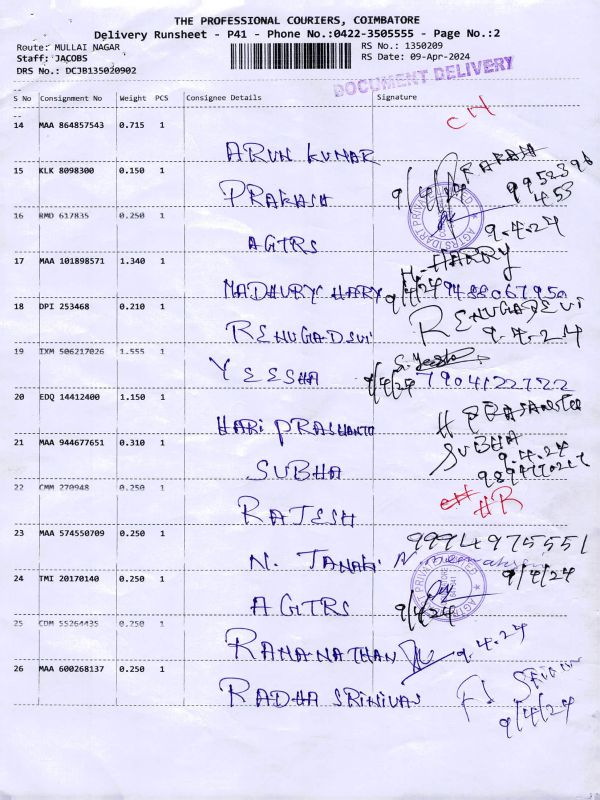 THE PROFESSIONAL COURIERS, COIMBATORE
Delivery Runsheet - P41 - Phone No.:0422-3505555 - Page No.:2
Route: MULLAI NAGAR
RS No.: 1350209
Staff: JACOBS
RS Date: 09-Apr-2024
DRS No.: DCJB135020902
DOCUMENT DELIVERY
S No Consignment No Weight PCS Consignee Details Signature
14 MAA 864857543 0.715 1
CN
ARUN KUMAR
15 KLK 8098300 0.150 1
PRAKASH
9/4/24
9952396
453
16 RMD 617835 0.250 1
AGTRS
9.4.24
17 MAA 101898571 1.340 1
H. HARRY
MADHURY HARY 9/4/24 9488067950
18 DPI 253468 0.210 1
RENUGADEVI
RENUGADEVI
9.4.24
19 IXM 506217026 1.555 1
YEESHA
9/4/24 7904122722
20 EDQ 14412400 1.150 1
HARI PRASHANTO
21 MAA 944677651 0.310 1
SUBHA
SUBHA
9.4.24
22 CMM 270948 0.250 1
RAJESH
HR
23 MAA 574550709 0.250 1
9994975551
N. JANAKI
9/4/24
24 TMI 20170140 0.250 1
AGTRS
9/4/24
25 CDM 55264435 0.250 1
RAMANATHAN
9.4.24
26 MAA 600268137 0.250 1
RADHA SRINIVAS
9/4/24